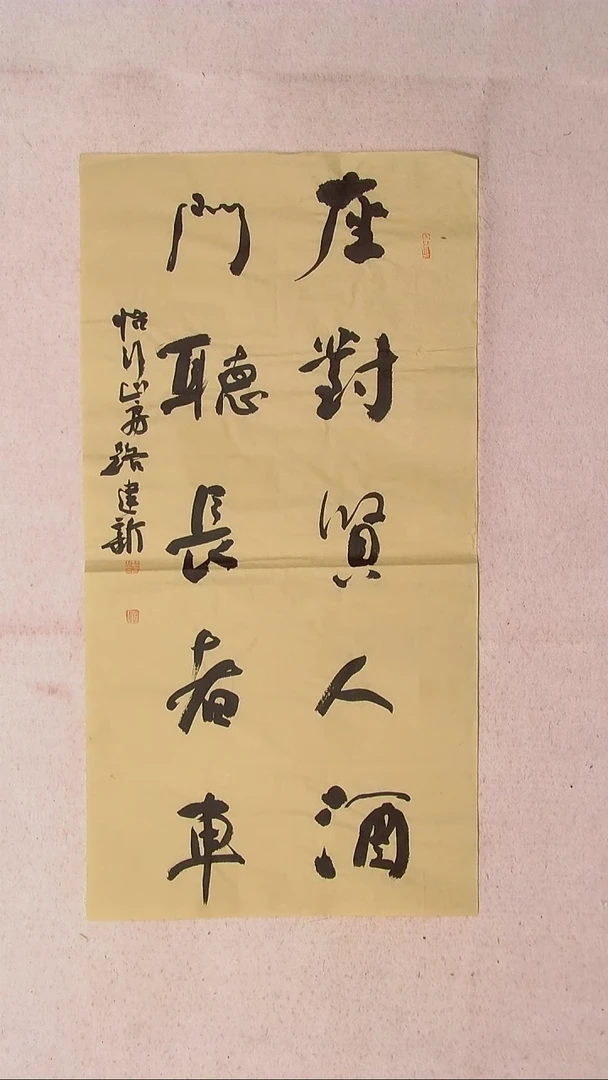 座對賢人酒
門聽長者車
山房路建新